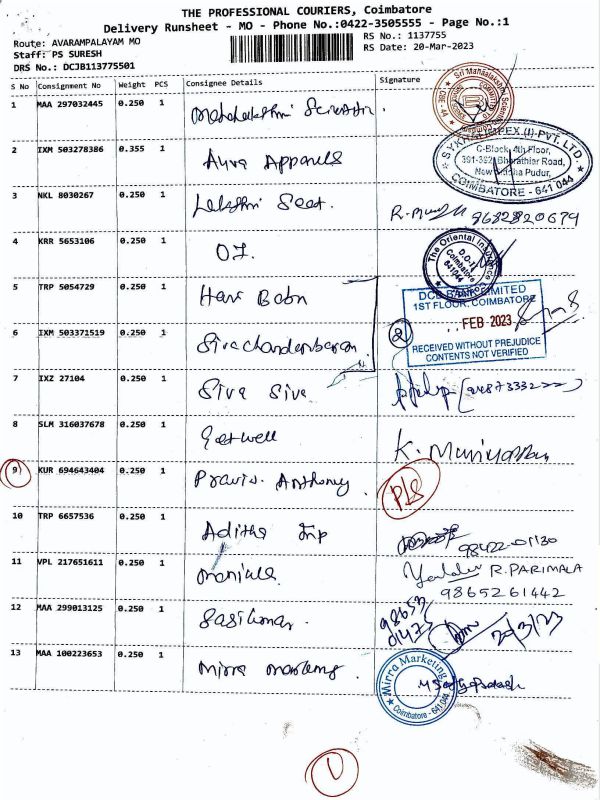 THE PROFESSIONAL COURIERS, Coimbatore
Delivery Runsheet - MO - Phone No.:0422-3505555 - Page No.:1
Route: AVARAMPALAYAM MO
RS No.: 1137755
Staff: PS SURESH
RS Date: 20-Mar-2023
DRS No.: DCJB113775501
S No Consignment No Weight PCS Consignee Details Signature
1 MAA 297032445 0.250 1
Sri Mahaalakshmi
2 IXM 503278386 0.355 1 Aura Apparels
IMPEX (I) PVT. LTD.
C-Block, 4th Floor,
391-392 Bharathiar Road,
New Siddha Pudur,
COIMBATORE - 641 044
3 NKL 8030267 0.250 1 Lakshmi Seat. 9682820679
4 KRR 5653106 0.250 1 OI.
The Oriental Insurance
D.O-1
Coimbatore
5 TRP 5054729 0.250 1 Hari Babu
DCB BANK LIMITED
1ST FLOOR, COIMBATORE
FEB 2023
RECEIVED WITHOUT PREJUDICE
CONTENTS NOT VERIFIED
6 IXM 503371519 0.250 1 2
7 IXZ 27104 0.250 1 Siva Siva
8 SLM 316037678 0.250 1 Getwell K. Muniyappan
9 KUR 694643404 0.250 1 Pravis. Anthony P/S
10 TRP 6657536 0.250 1 Aditha Imp 98422-01130
11 VPL 217651611 0.250 1 R. PARIMALA
9865261442
12 MAA 299013125 0.250 1 Sasikumar. 98653
01475 20/3/23
13 MAA 100223653 0.250 1 Mirra Marketing.
Mirra Marketing
Coimbatore - 641 044